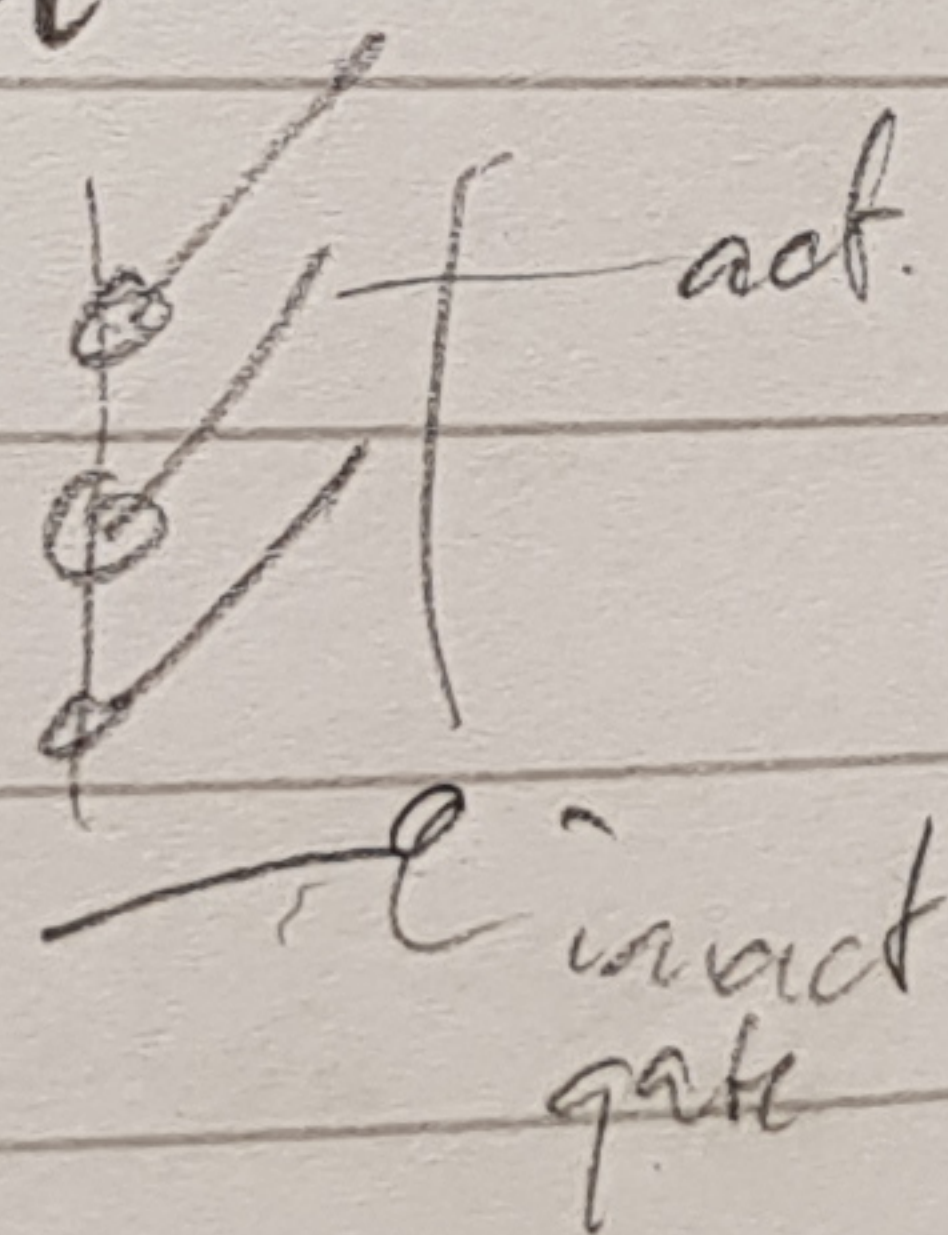 act.
inact
gate